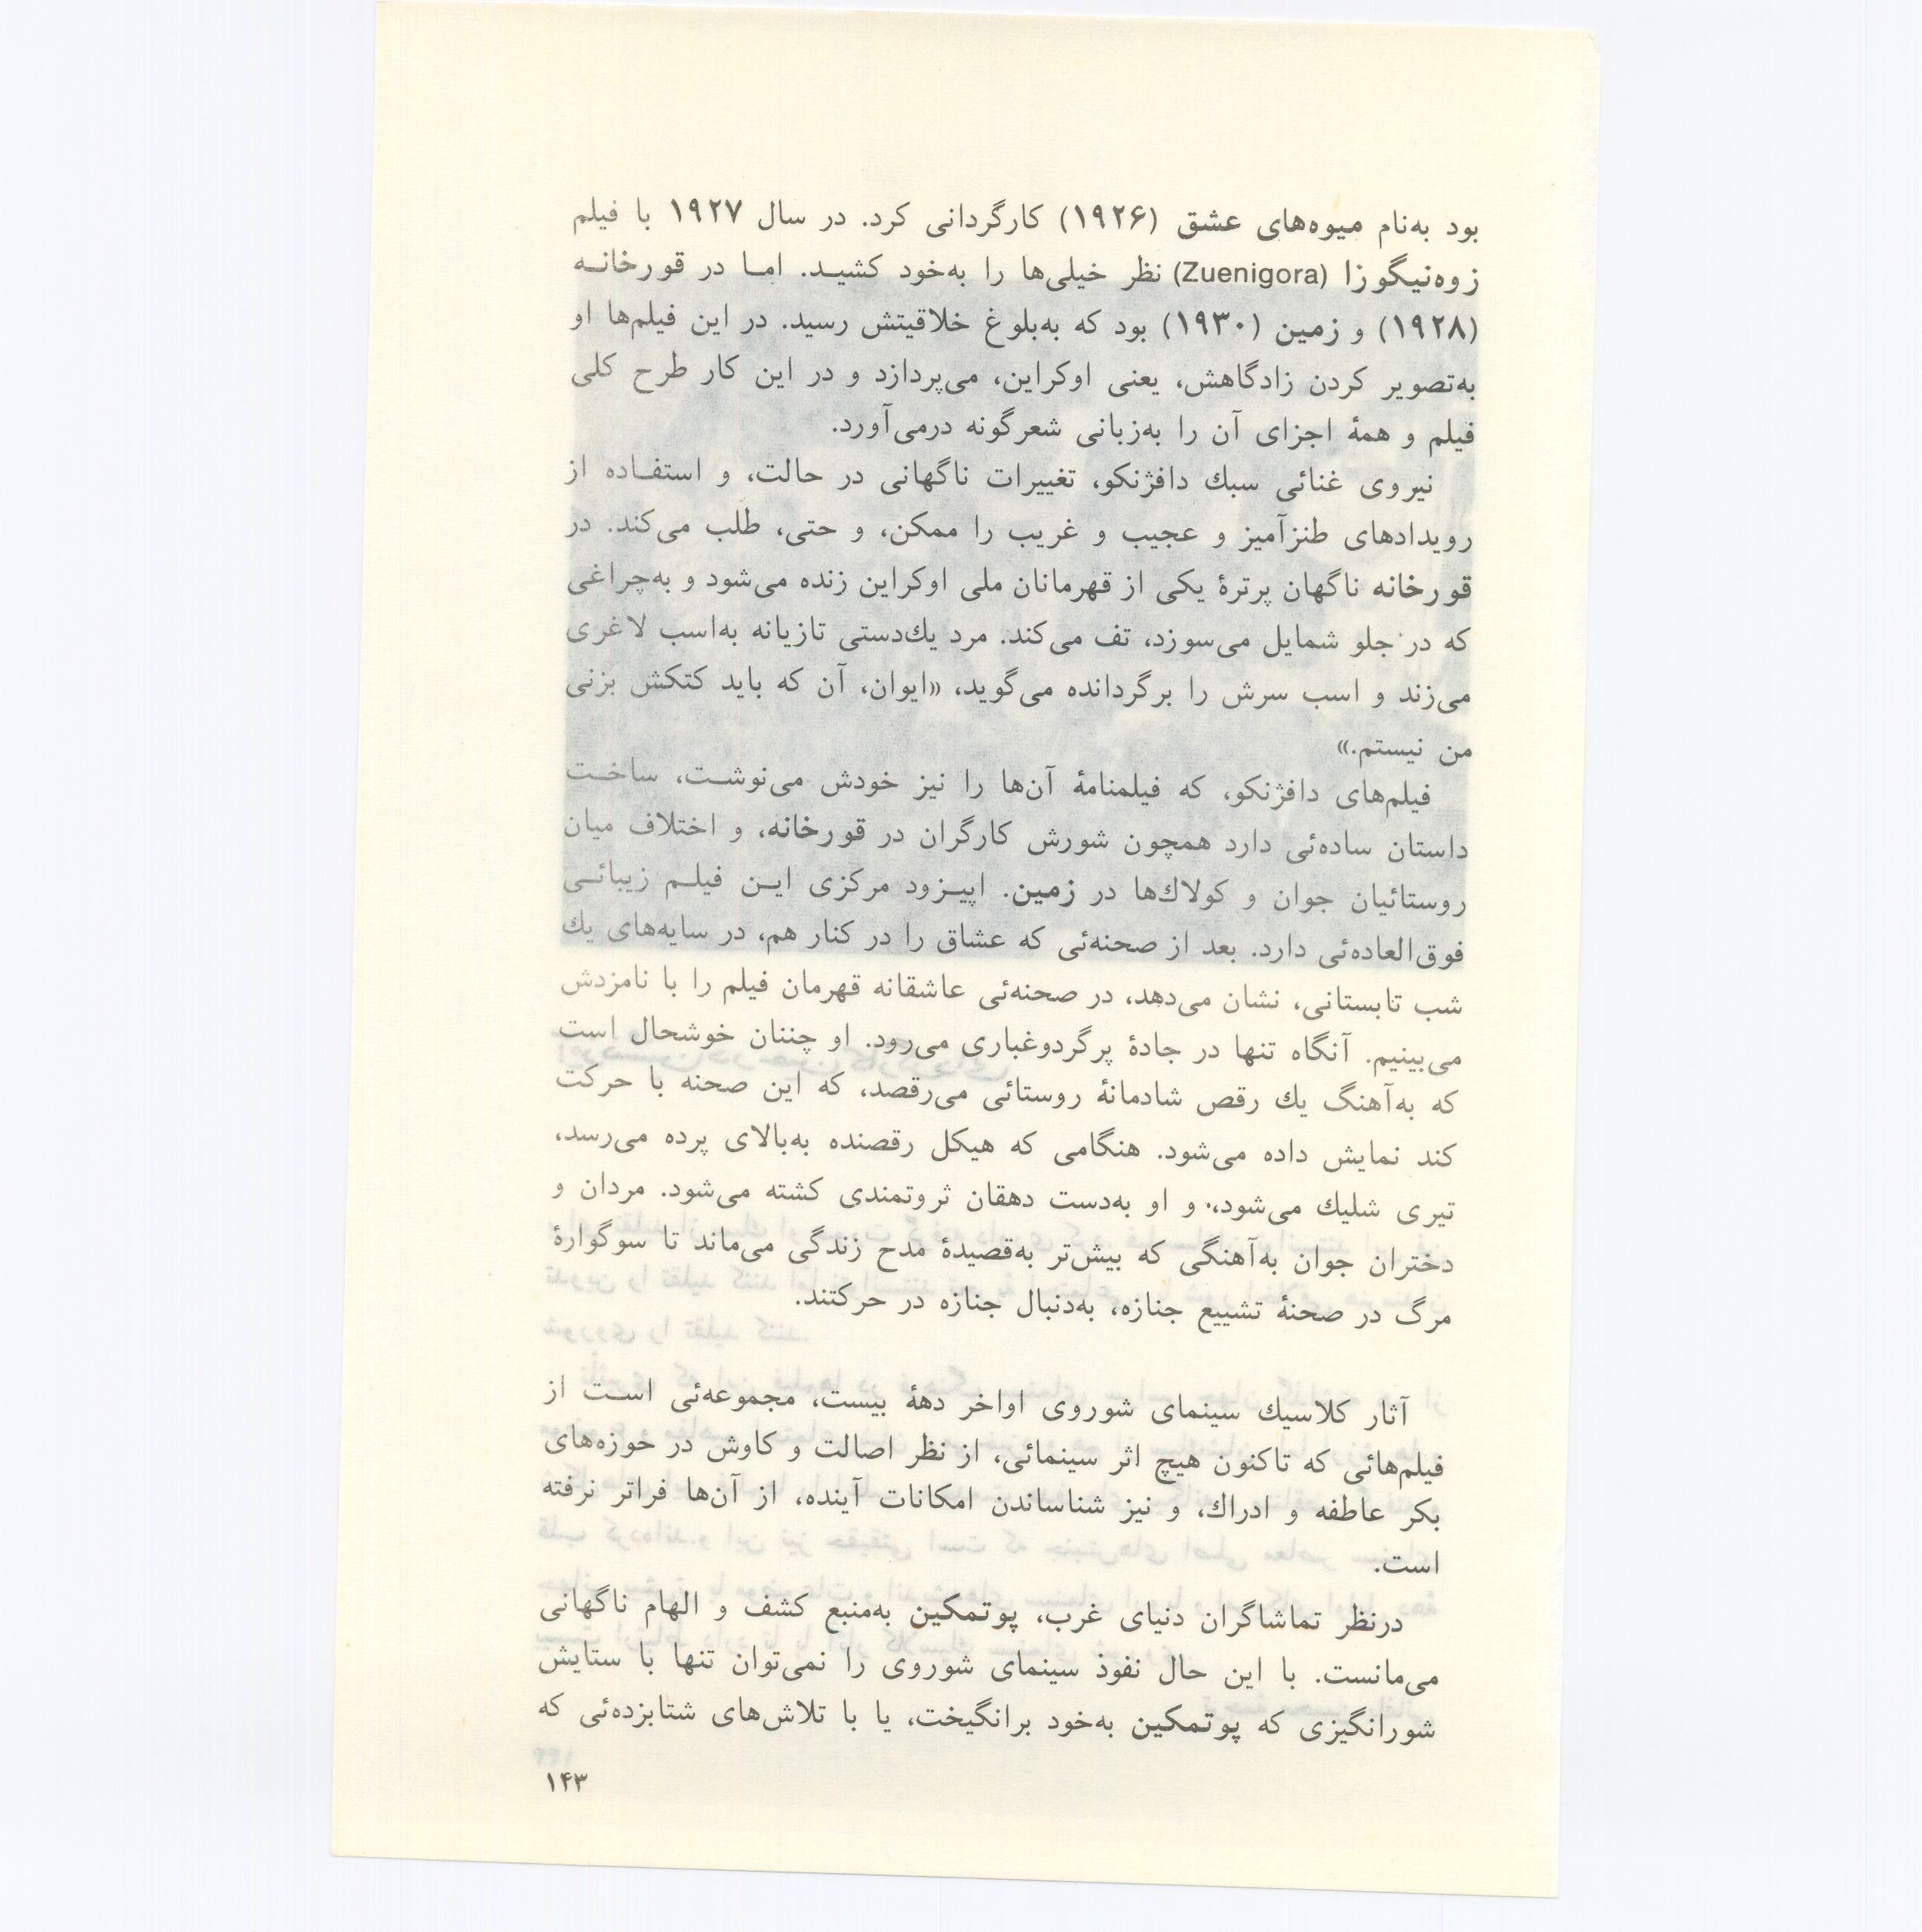 بود به‌نام میوه‌های عشق (۱۹۲۶) کارگردانی کرد. در سال ۱۹۲۷ با فیلم
زوه‌نیگوزا (Zuenigora) نظر خیلی‌ها را به‌خود کشیـد. امـا در قورخانـه
(۱۹۲۸) و زمین (۱۹۳۰) بود که به‌بلوغ خلاقیتش رسید. در این فیلم‌ها او
به‌تصویر کردن زادگاهش، یعنی اوکراین، می‌پردازد و در این کار طرح کلی
فیلم و همهٔ اجزای آن را به‌زبانی شعرگونه درمی‌آورد.
نیروی غنائی سبك دافژنکو، تغییرات ناگهانی در حالت، و استفـاده از
رویدادهای طنزآمیز و عجیب و غریب را ممکن، و حتی، طلب می‌کند. در
قورخانه ناگهان پرترهٔ یکی از قهرمانان ملی اوکراین زنده می‌شود و به‌چراغی
که در جلو شمایل می‌سوزد، تف می‌کند. مرد یك‌دستی تازیانه به‌اسب لاغری
می‌زند و اسب سرش را برگردانده می‌گوید، «ایوان، آن که باید کتکش بزنی
من نیستم.»
فیلم‌های دافژنکو، که فیلمنامهٔ آن‌ها را نیز خودش می‌نوشـت، ساخـت
داستان ساده‌ئی دارد همچون شورش کارگران در قورخانه، و اختلاف میان
روستائیان جوان و کولاك‌ها در زمین. اپیـزود مرکزی ایـن فیلـم زیبائـی
فوق‌العاده‌ئی دارد. بعد از صحنه‌ئی که عشاق را در کنار هم، در سایه‌های یك
شب تابستانی، نشان می‌دهد، در صحنه‌ئی عاشقانه قهرمان فیلم را با نامزدش
می‌بینیم. آنگاه تنها در جادهٔ پرگردوغباری می‌رود. او چننان خوشحال است
که به‌آهنگ یك رقص شادمانهٔ روستائی می‌رقصد، که این صحنه با حرکت
کند نمایش داده می‌شود. هنگامی که هیکل رقصنده به‌بالای پرده می‌رسد،
تیری شلیك می‌شود،. و او به‌دست دهقان ثروتمندی کشته می‌شود. مردان و
دختران جوان به‌آهنگی که بیش‌تر به‌قصیدهٔ مدح زندگی می‌ماند تا سوگوارهٔ
مرگ در صحنهٔ تشییع جنازه، به‌دنبال جنازه در حرکتند.
آثار کلاسیك سینمای شوروی اواخر دههٔ بیست، مجموعه‌ئی اسـت از
فیلم‌هائی که تاکنون هیچ اثر سینمائی، از نظر اصالت و کاوش در حوزه‌های
بکر عاطفه و ادراك، و نیز شناساندن امکانات آینده، از آن‌ها فراتر نرفته
است.
درنظر تماشاگران دنیای غرب، پوتمکین به‌منبع کشف و الهام ناگهانی
می‌مانست. با این حال نفوذ سینمای شوروی را نمی‌توان تنها با ستایش
شورانگیزی که پوتمکین به‌خود برانگیخت، یا با تلاش‌های شتابزده‌ئی که
۱۴۳